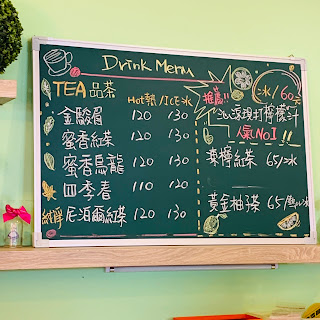 Drink Menu
TEA品茶
Hot熱/ICE冰
金駿眉 120 130
蜜香紅茶 120 130
蜜香烏龍 120 130
四季春 110 120
純淨 尼泊爾紅茶 120 130
推薦!!
冰/60元
現打檸檬汁
人氣No.1!!
檸紅茶 65/冰
黃金柚子茶 65/